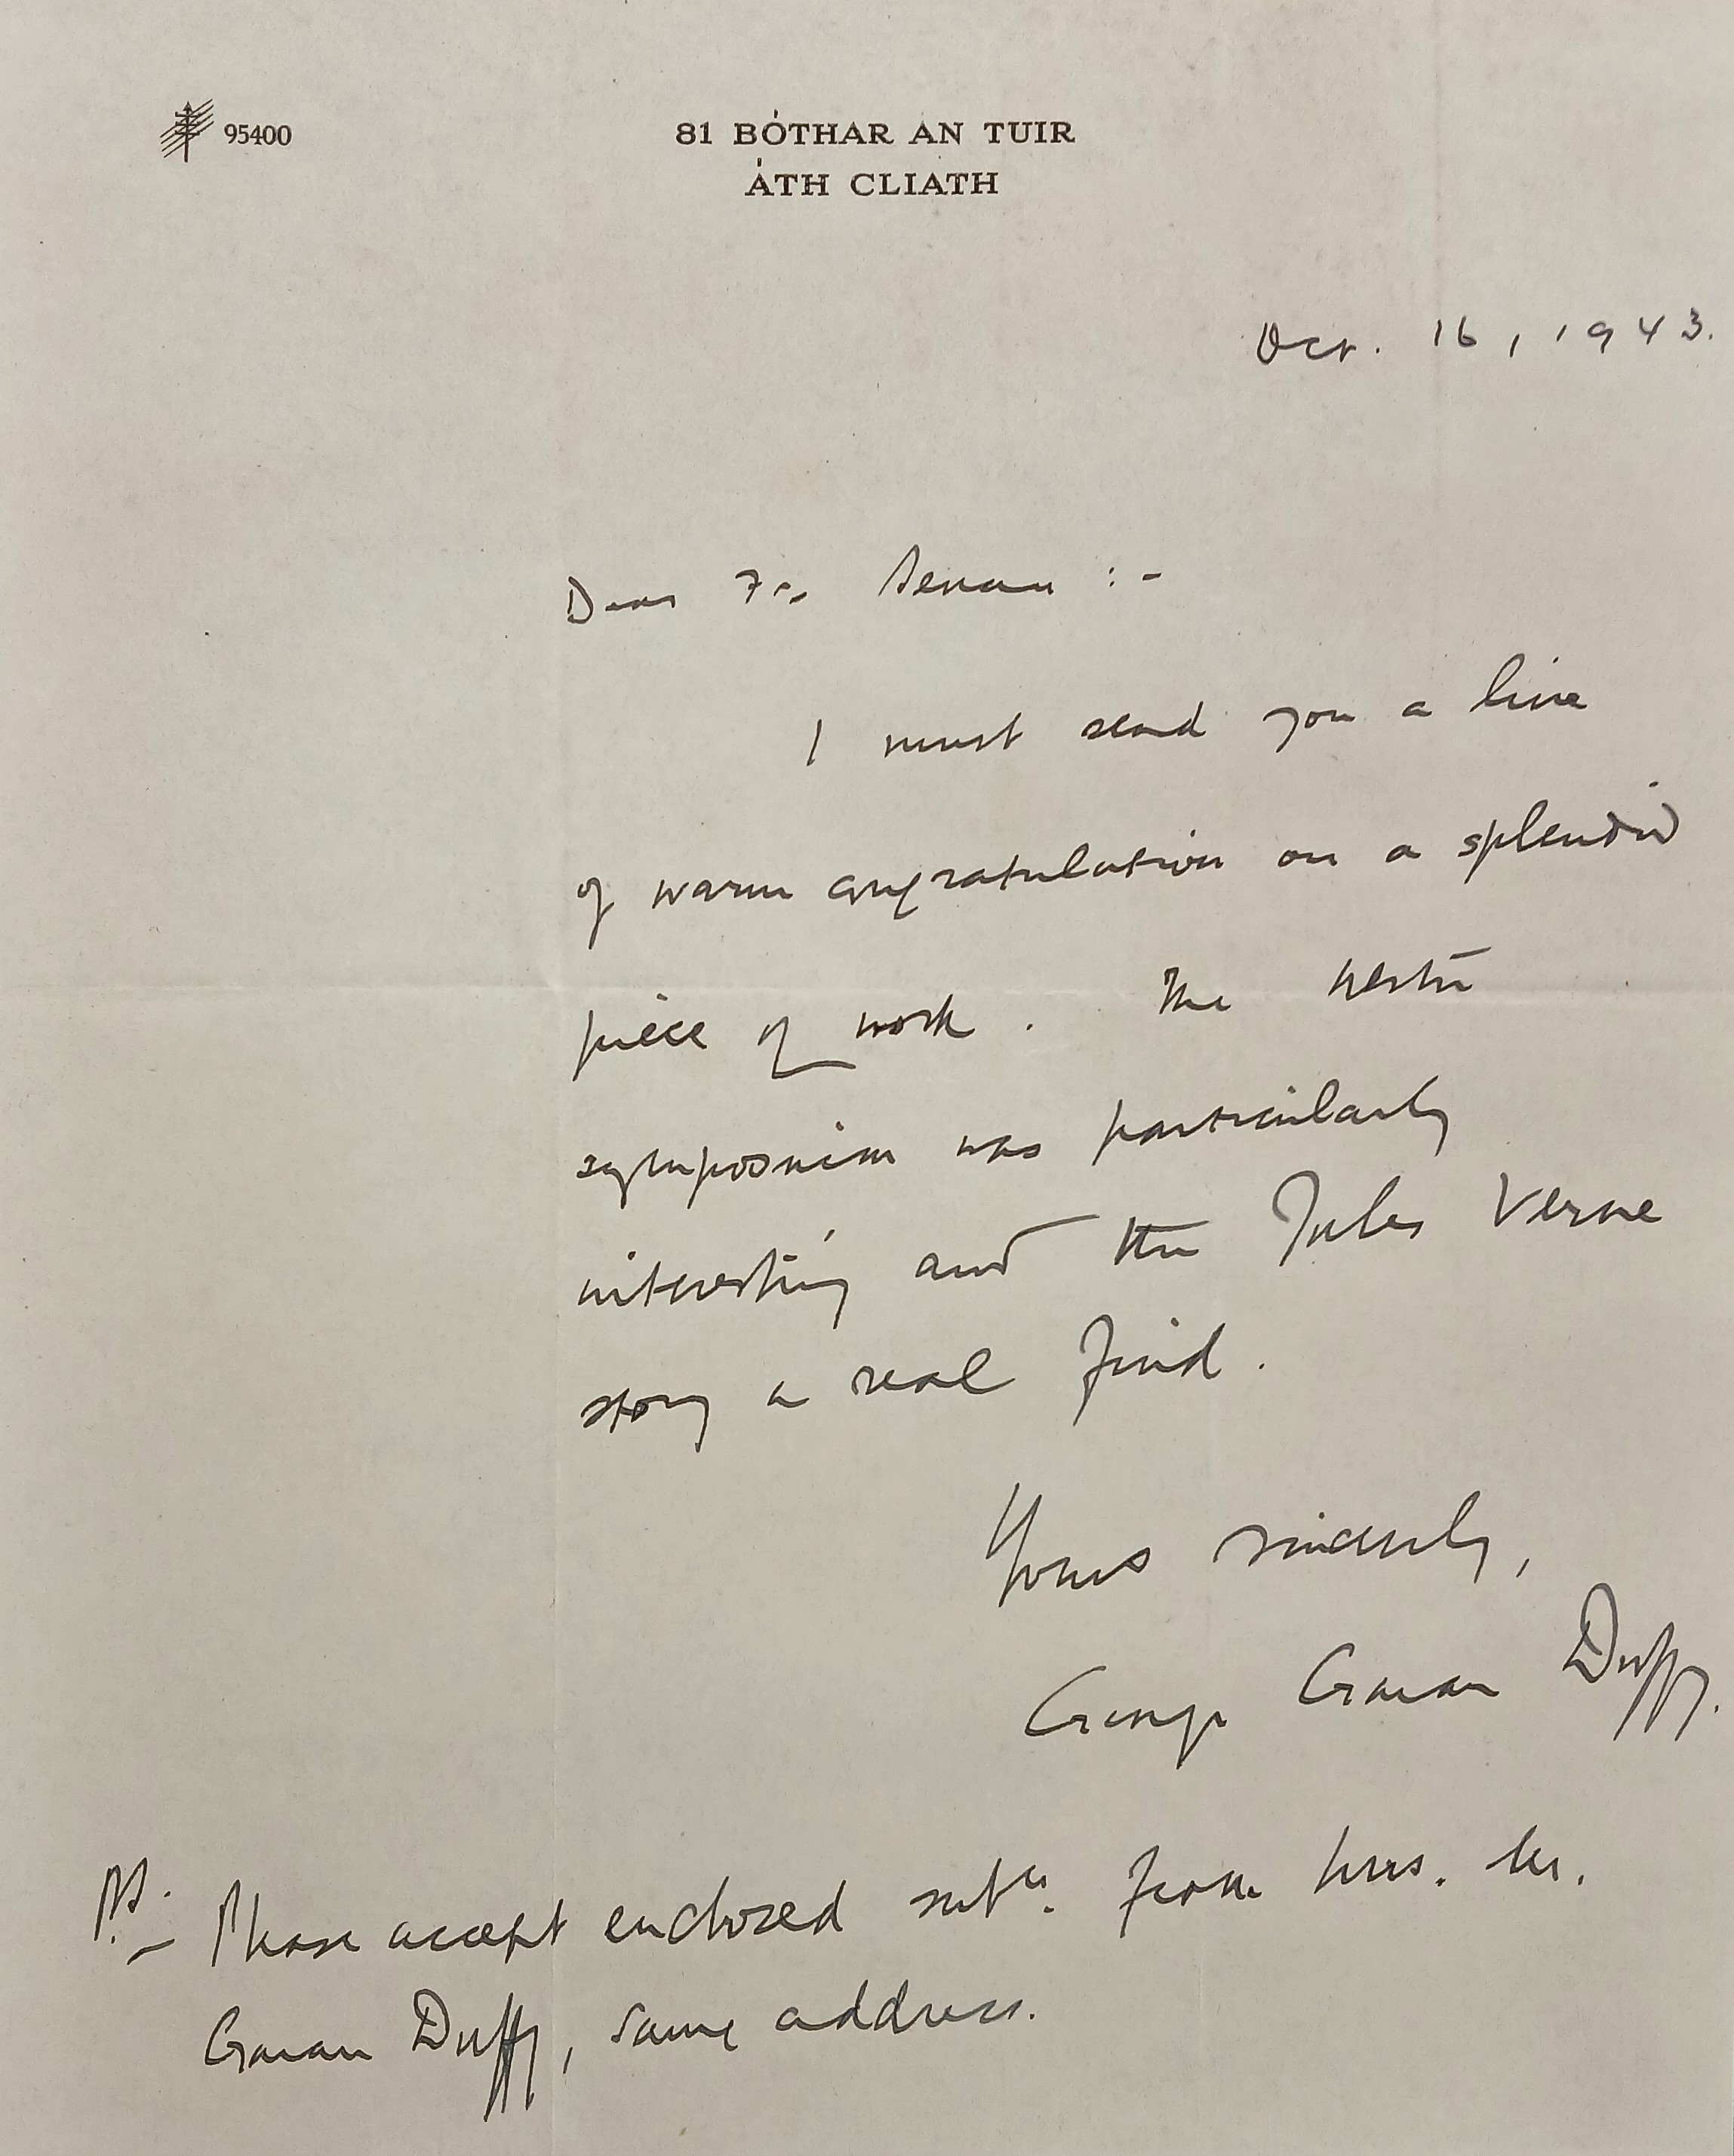 95400
81 BÓTHAR AN TUIR
ÁTH CLIATH
Oct. 16, 1943.
Dear Fr. Senan :-
I must send you a line
of warm congratulation on a splendid
piece of work. The
symposium was particularly
interesting and the Jules Verne
story a real find.
Yours sincerely,
George Gavan Duffy.
P.S. - Please accept enclosed from Mrs.
Gavan Duffy, same address.